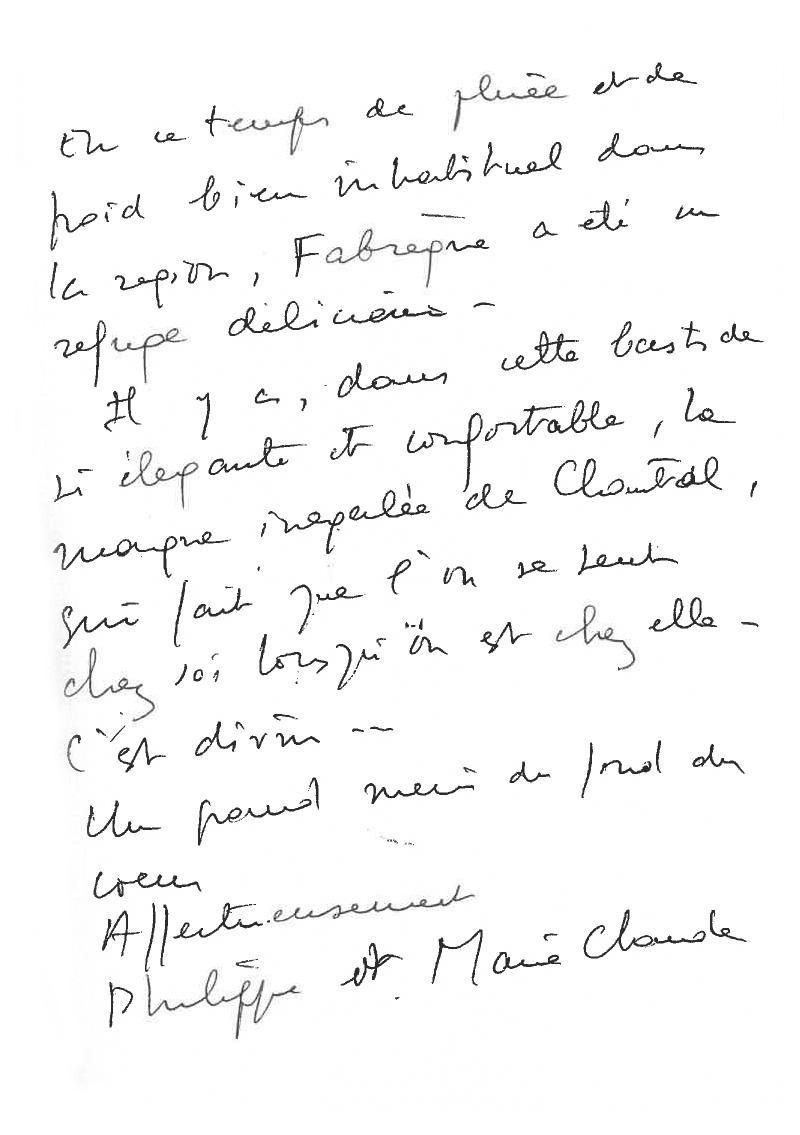 En ce temps de pluie et de
froid bien inhabituel dans
la region, Fabrègue a été un
refuge délicieux -
Il y a, dans cette bastide
si élégante et confortable, la
marque inegalée de Chantal,
qui fait que l'on se sent
chez soi lorsqu'on est chez elle -
C'est divin --
Un grand merci du fond du
coeur
Affectueusement
Philippe et Marie Claude